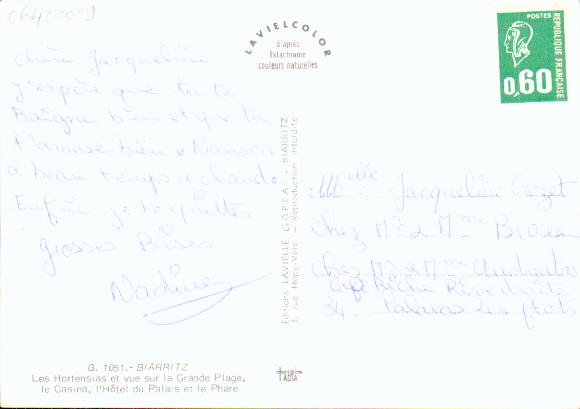 06400009
LAVIELCOLOR
d'après
Ektachrome
couleurs naturelles
POSTES
REPUBLIQUE FRANÇAISE
0,60
chère Jacqueline
J'espère que tu te
Baigne bien et que tu
t'amuse bien
a beau temps
Enfin je te quittes
grosses Bises
Nadine
Editions LAVIELLE G.O.P.E.A.I - BIARRITZ
3, rue Hope-Vère - Reproduction interdite
Melle Jacqueline Crozet
chez Mr & Mme
chez Mr & Mme
Café Riche Rive droite
34 Palavas Les Flots
G. 1051.- BIARRITZ
Les Hortensias et vue sur la Grande Plage,
le Casino, l'Hôtel du Palais et le Phare